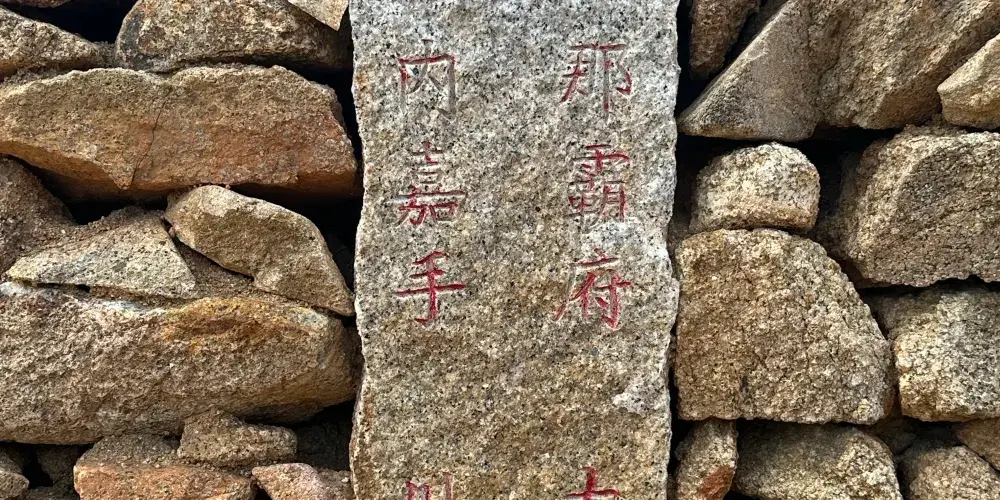 那霸府
内嘉手